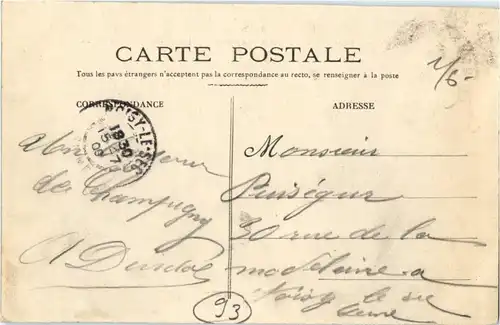 CARTE POSTALE
Tous les pays étrangers n'acceptent pas la correspondance au recto, se renseigner à la poste
CORRESPONDANCE
ADRESSE
NOISY-LE-SEC
18 30
15 - 7
09
Un
de Champigny
A
Monsieur
Puiségur
30 rue de la
madeleine a
Noisy le sec
Seine
1/6
93